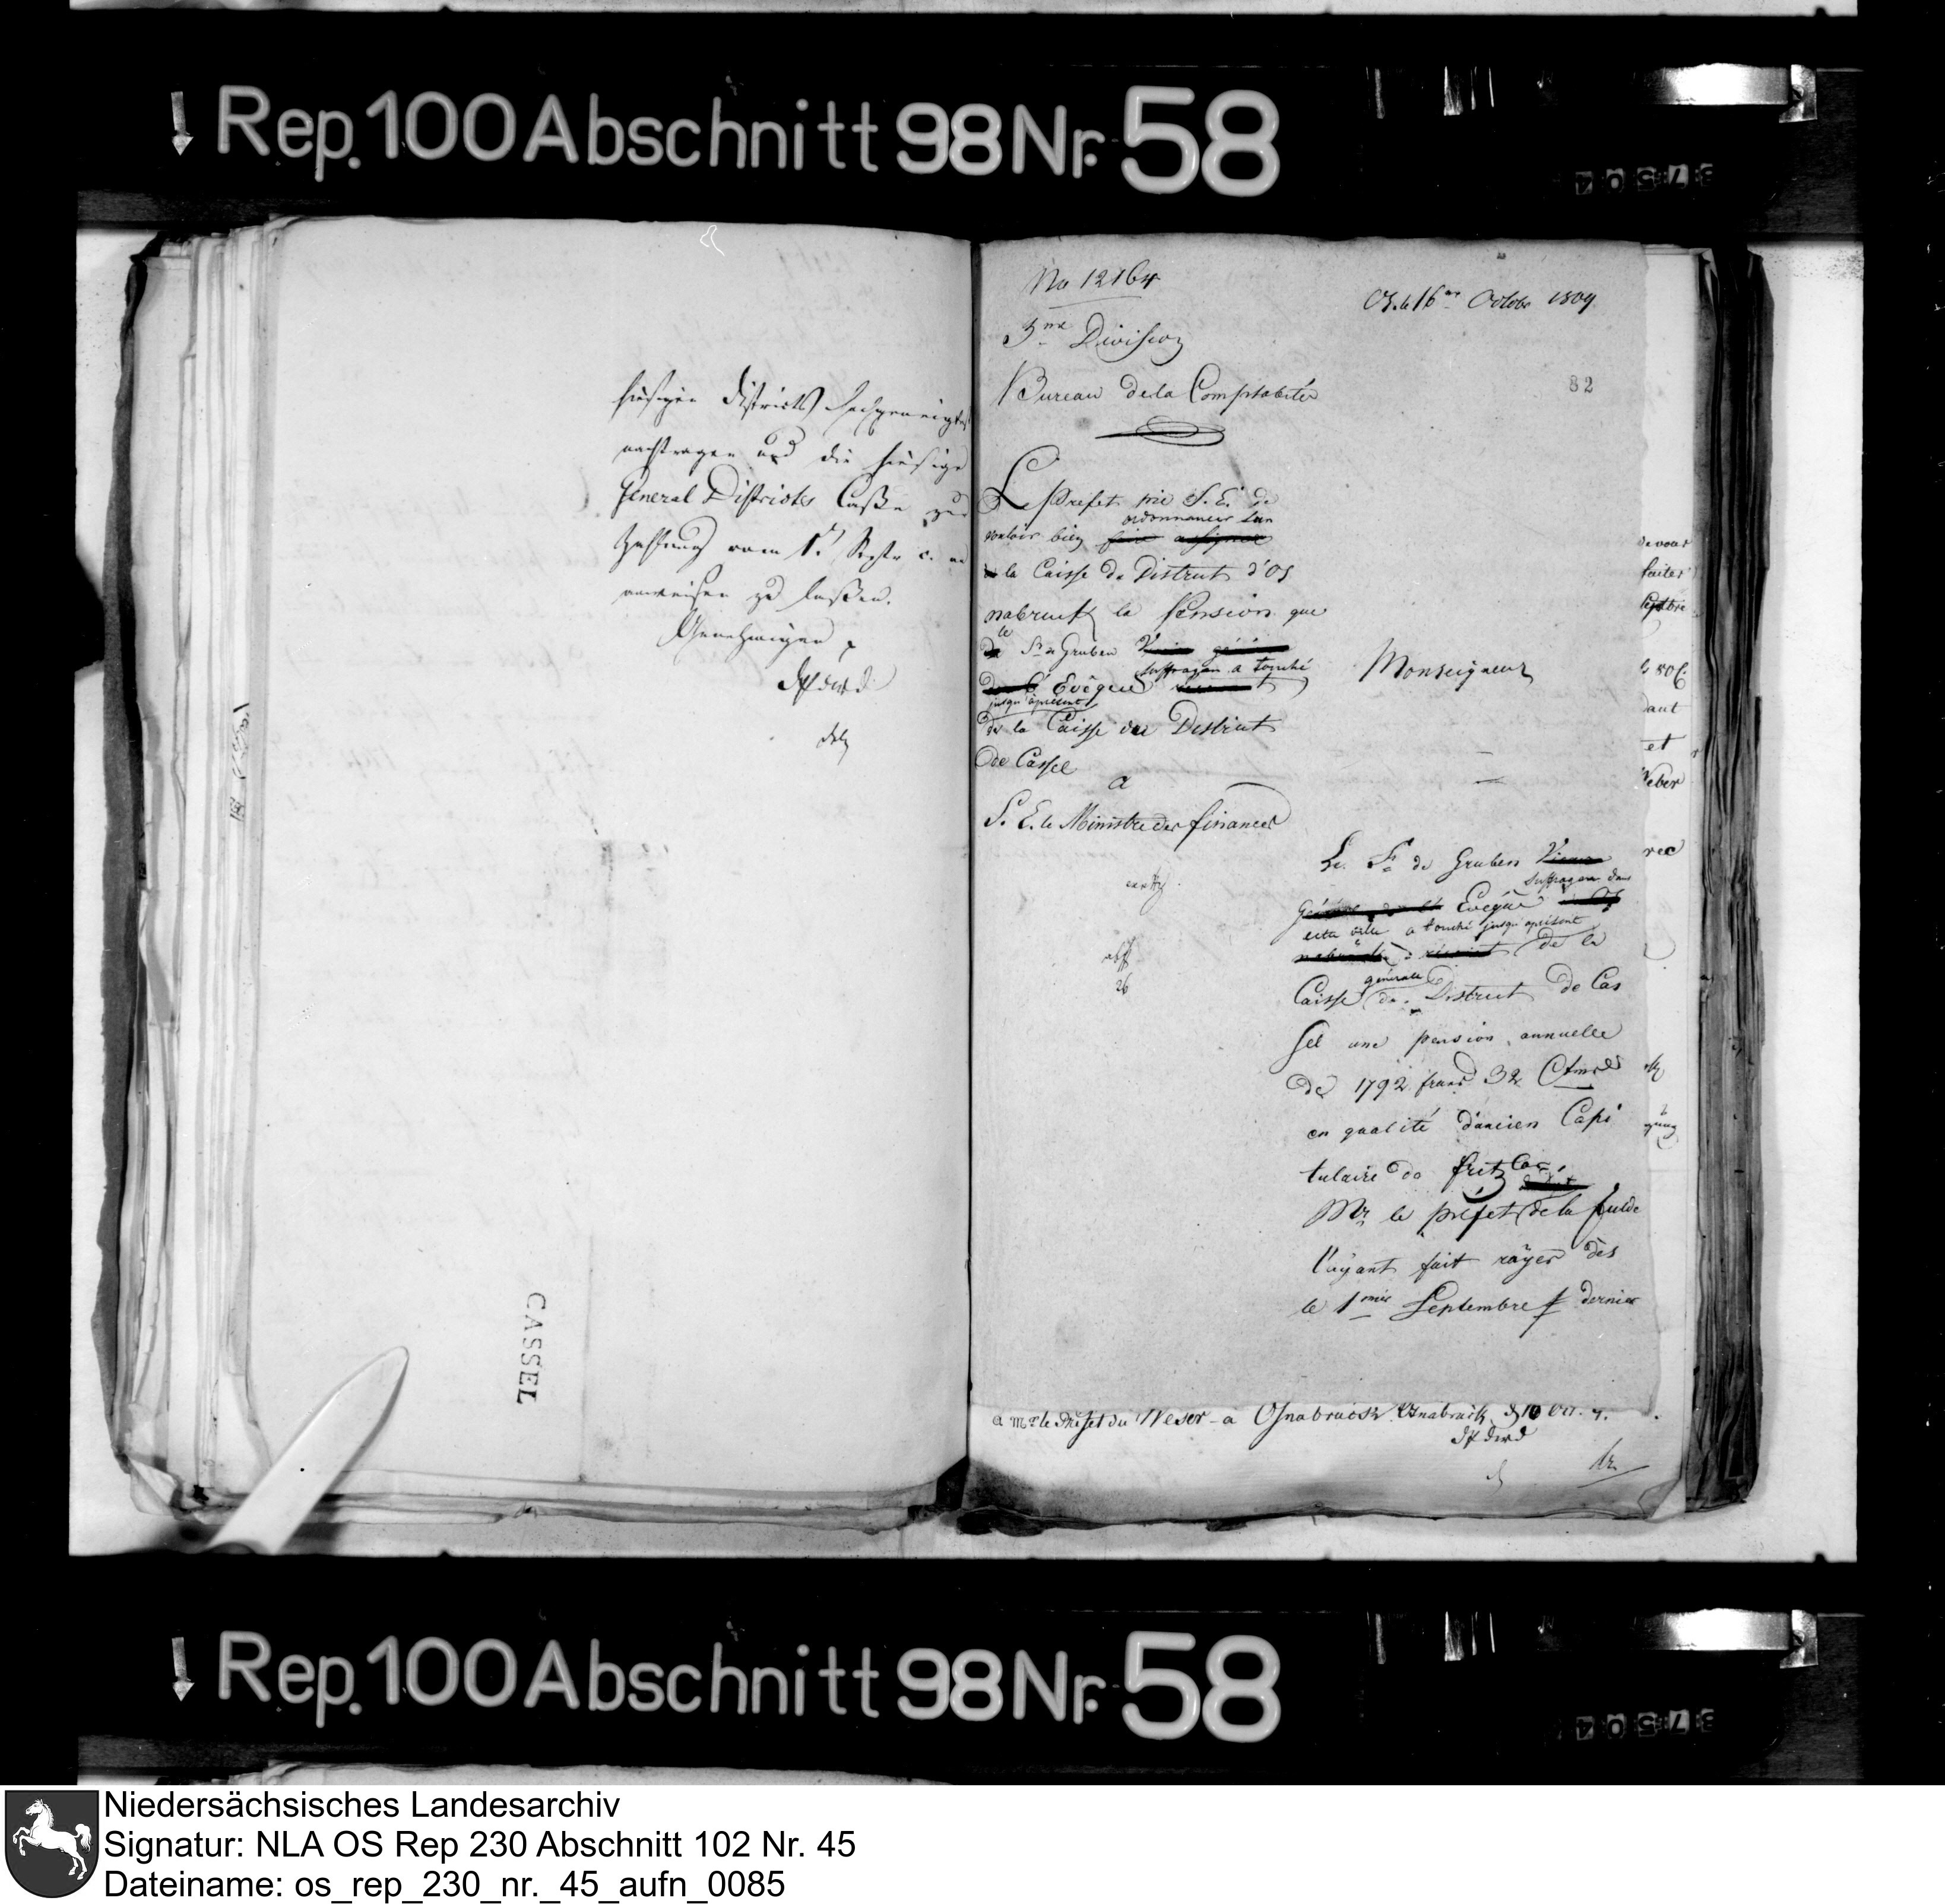 Rep. 100 Abschnitt 98 Nr. 58
37504
hiesigen Districts hochgeneigtest
nachtragen und die hiesige
General Districts Casse zur
Zahlung vom 1. Septr c. an
anweisen zu lassen.
CASSEL
No 12164
Os. le 16me Octobr 1809
5me Division
Bureau de la Comptabilité
82
Le Prefet prie S. E. de
ordonnancer sur
vouloir bien faire assigner
la Caisse du District d'Os
nabruck la Pension que
le
de Sr de Gruben Vicaire général
suffragan a touché
Evêque
jusqu'àprésent
de la Caisse du District
de Cassel
a
S. E. le Ministre des finances
Monseigneur
Le Sr de Gruben Vicaire
Suffragan dans
Général Evêque
cette ville a touché jusqu'aprésent
de la
générale
Caisse du District de Cas
sel une pension annuelle
de 1792 francs 32 Ctmes
en qualité d'ancien Capi
tulaire de Fritzlar,
Mr le préfet de la fulde
l'ayant fait rayer dès
le 1mier Septembre dernier
a Mr le Préfet du Weser a Osnabruck Osnabruck d 10 Oct. 9.
de vous
faites
Septbre
et
Weber
Rep. 100 Abschnitt 98 Nr. 58
37504
Niedersächsisches Landesarchiv
Signatur: NLA OS Rep 230 Abschnitt 102 Nr. 45
Dateiname: os_rep_230_nr._45_aufn_0085